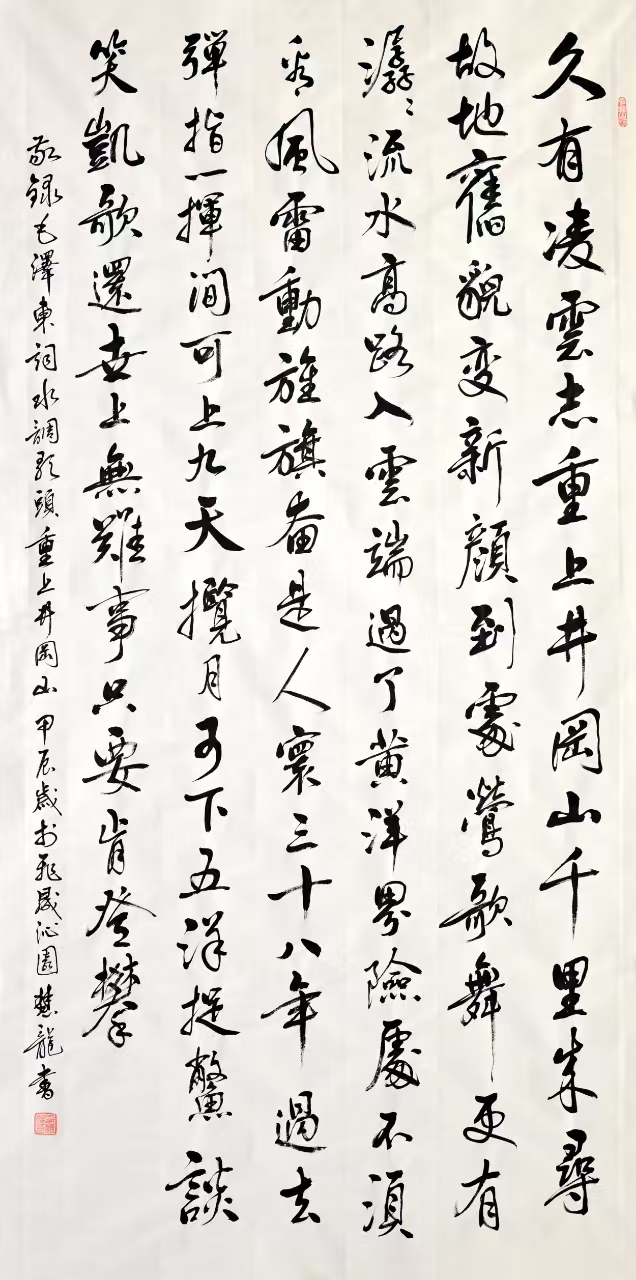 久有凌雲志重上井岡山千里来尋
故地舊貌变新顔到處鶯歌舞更有
潺〻流水高路入雲端過了黄洋界險處不須
看風雷動旌旗奋是人寰三十八年過去
彈指一揮间可上九天攬月可下五洋捉鱉談
笑凱歌還世上無難事只要肯登攀
敬録毛澤東詞水調歌頭重上井岡山甲辰歲於晟沁園龍書